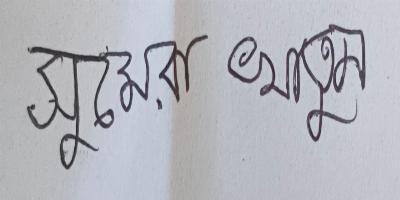 সুমেরা খাতুম